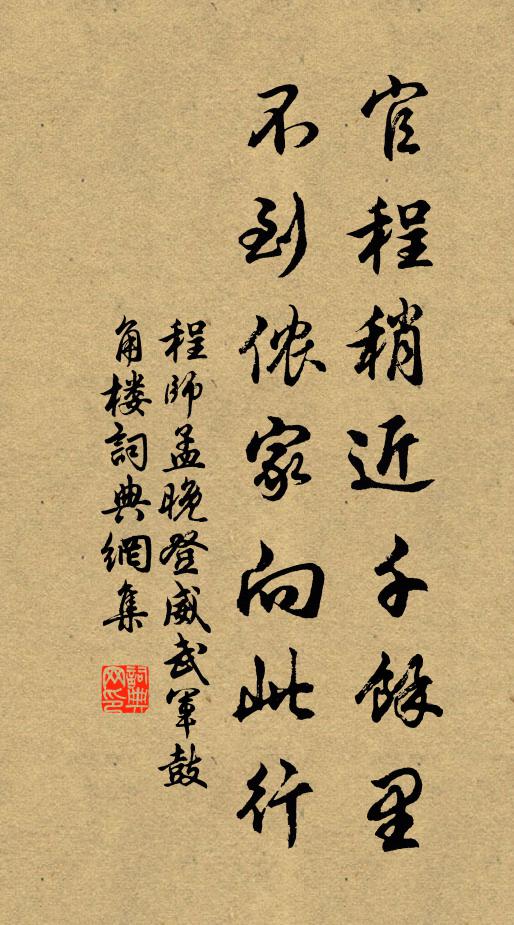 官程稍近千餘里
不到侬家向此行
程師孟晚登威武軍鼓
角楼詞典網集
詞典网印